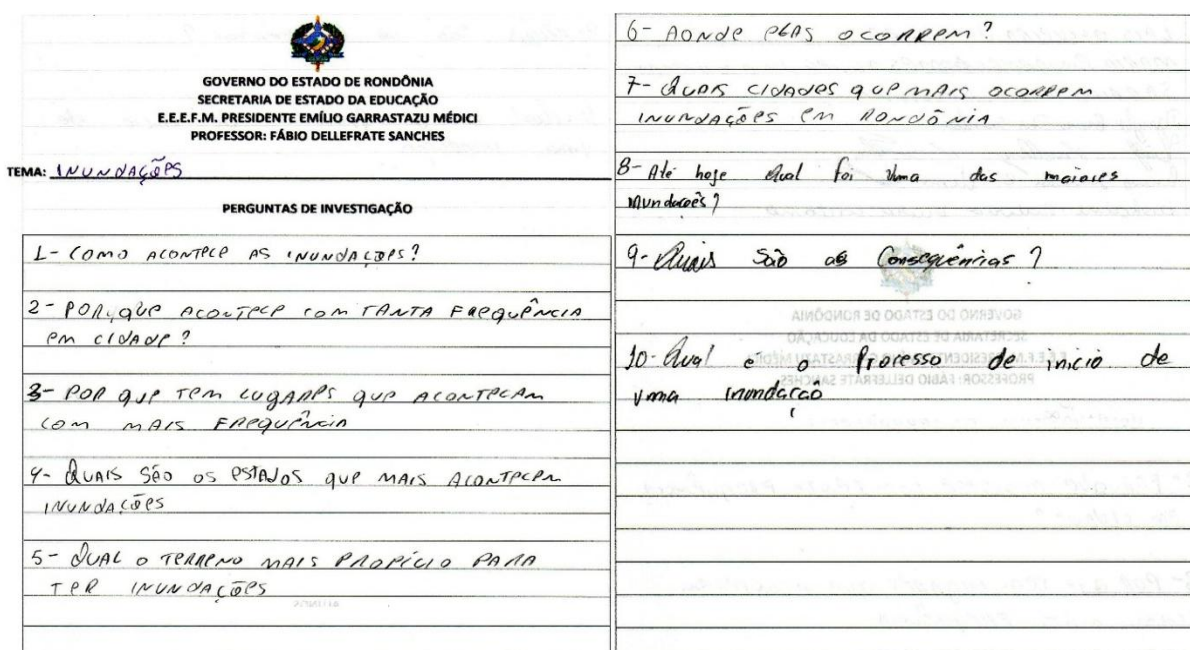 GOVERNO DO ESTADO DE RONDÔNIA
SECRETARIA DE ESTADO DA EDUCAÇÃO
E.E.E.F.M. PRESIDENTE EMÍLIO GARRASTAZU MÉDICI
PROFESSOR: FÁBIO DELLEFRATE SANCHES
TEMA: INUNDAÇÕES
PERGUNTAS DE INVESTIGAÇÃO
1- COMO ACONTECE AS INUNDAÇÕES?
2- PORQUE ACONTECE COM TANTA FREQUÊNCIA
EM CIDADE?
3- POR QUE TEM LUGARES QUE ACONTEÇAM
COM MAIS FREQUÊNCIA
4- QUAIS SÃO OS ESTADOS QUE MAIS ACONTECEM
INUNDAÇÕES
5- QUAL O TERRENO MAIS PROPÍCIO PARA
TER INUNDAÇÕES
6- AONDE ELAS OCORREM?
7- QUAIS CIDADES QUE MAIS OCORREM
INUNDAÇÕES EM RONDÔNIA
8- Até hoje Qual foi Uma das maiores
inundações?
9- Quais São as Consequências?
10- Qual é o Processo de inicio de
uma inundação